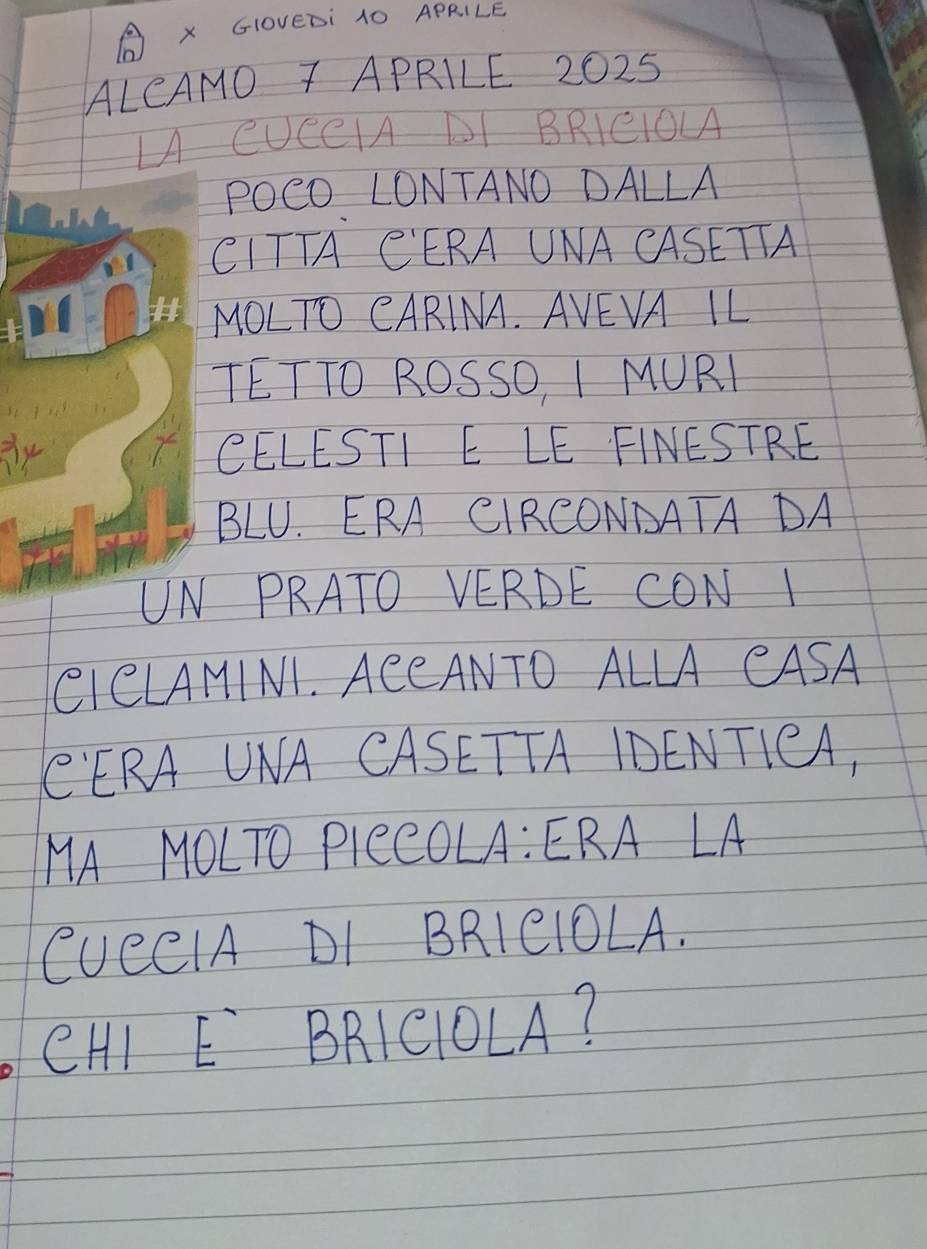 X GIOVEDì 10 APRILE
ALCAMO 7 APRILE 2025
LA CUCCIA DI BRICIOLA
POCO LONTANO DALLA
CITTÀ C'ERA UNA CASETTA
MOLTO CARINA. AVEVA IL
TETTO ROSSO, I MURI
CELESTI E LE FINESTRE
BLU. ERA CIRCONDATA DA
UN PRATO VERDE CON I
CICLAMINI. ACCANTO ALLA CASA
C'ERA UNA CASETTA IDENTICA,
MA MOLTO PICCOLA: ERA LA
CUCCIA DI BRICIOLA.
CHI È BRICIOLA?